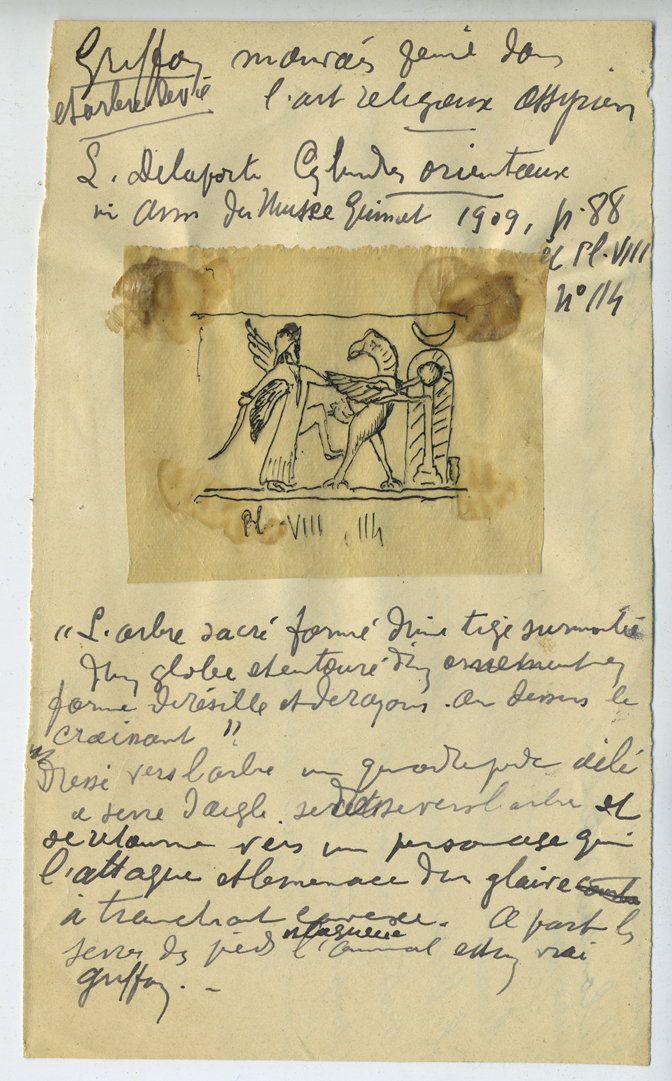 Griffon mauvais génie dans
et arbre de vie l'art religieux assyrien
L. Delaporte Cylindres orientaux
in Ann du Musée Guimet 1909, p. 88
et Pl. VIII
n° 114
Pl. VIII . 114
"L'arbre sacré formé d'une tige surmontée
d'un globe et entouré d'un ornement en
forme de résille et de rayons. Au dessus le
croissant"
Dressé vers l'arbre un quadrupède ailé
a serre d'aigle se dresse vers l'arbre et
se retourne vers un personnage qui
l'attaque et le menace d'un glaive
à tranchant convexe. A part les
serres des pieds l'animal est un vrai
griffon. -